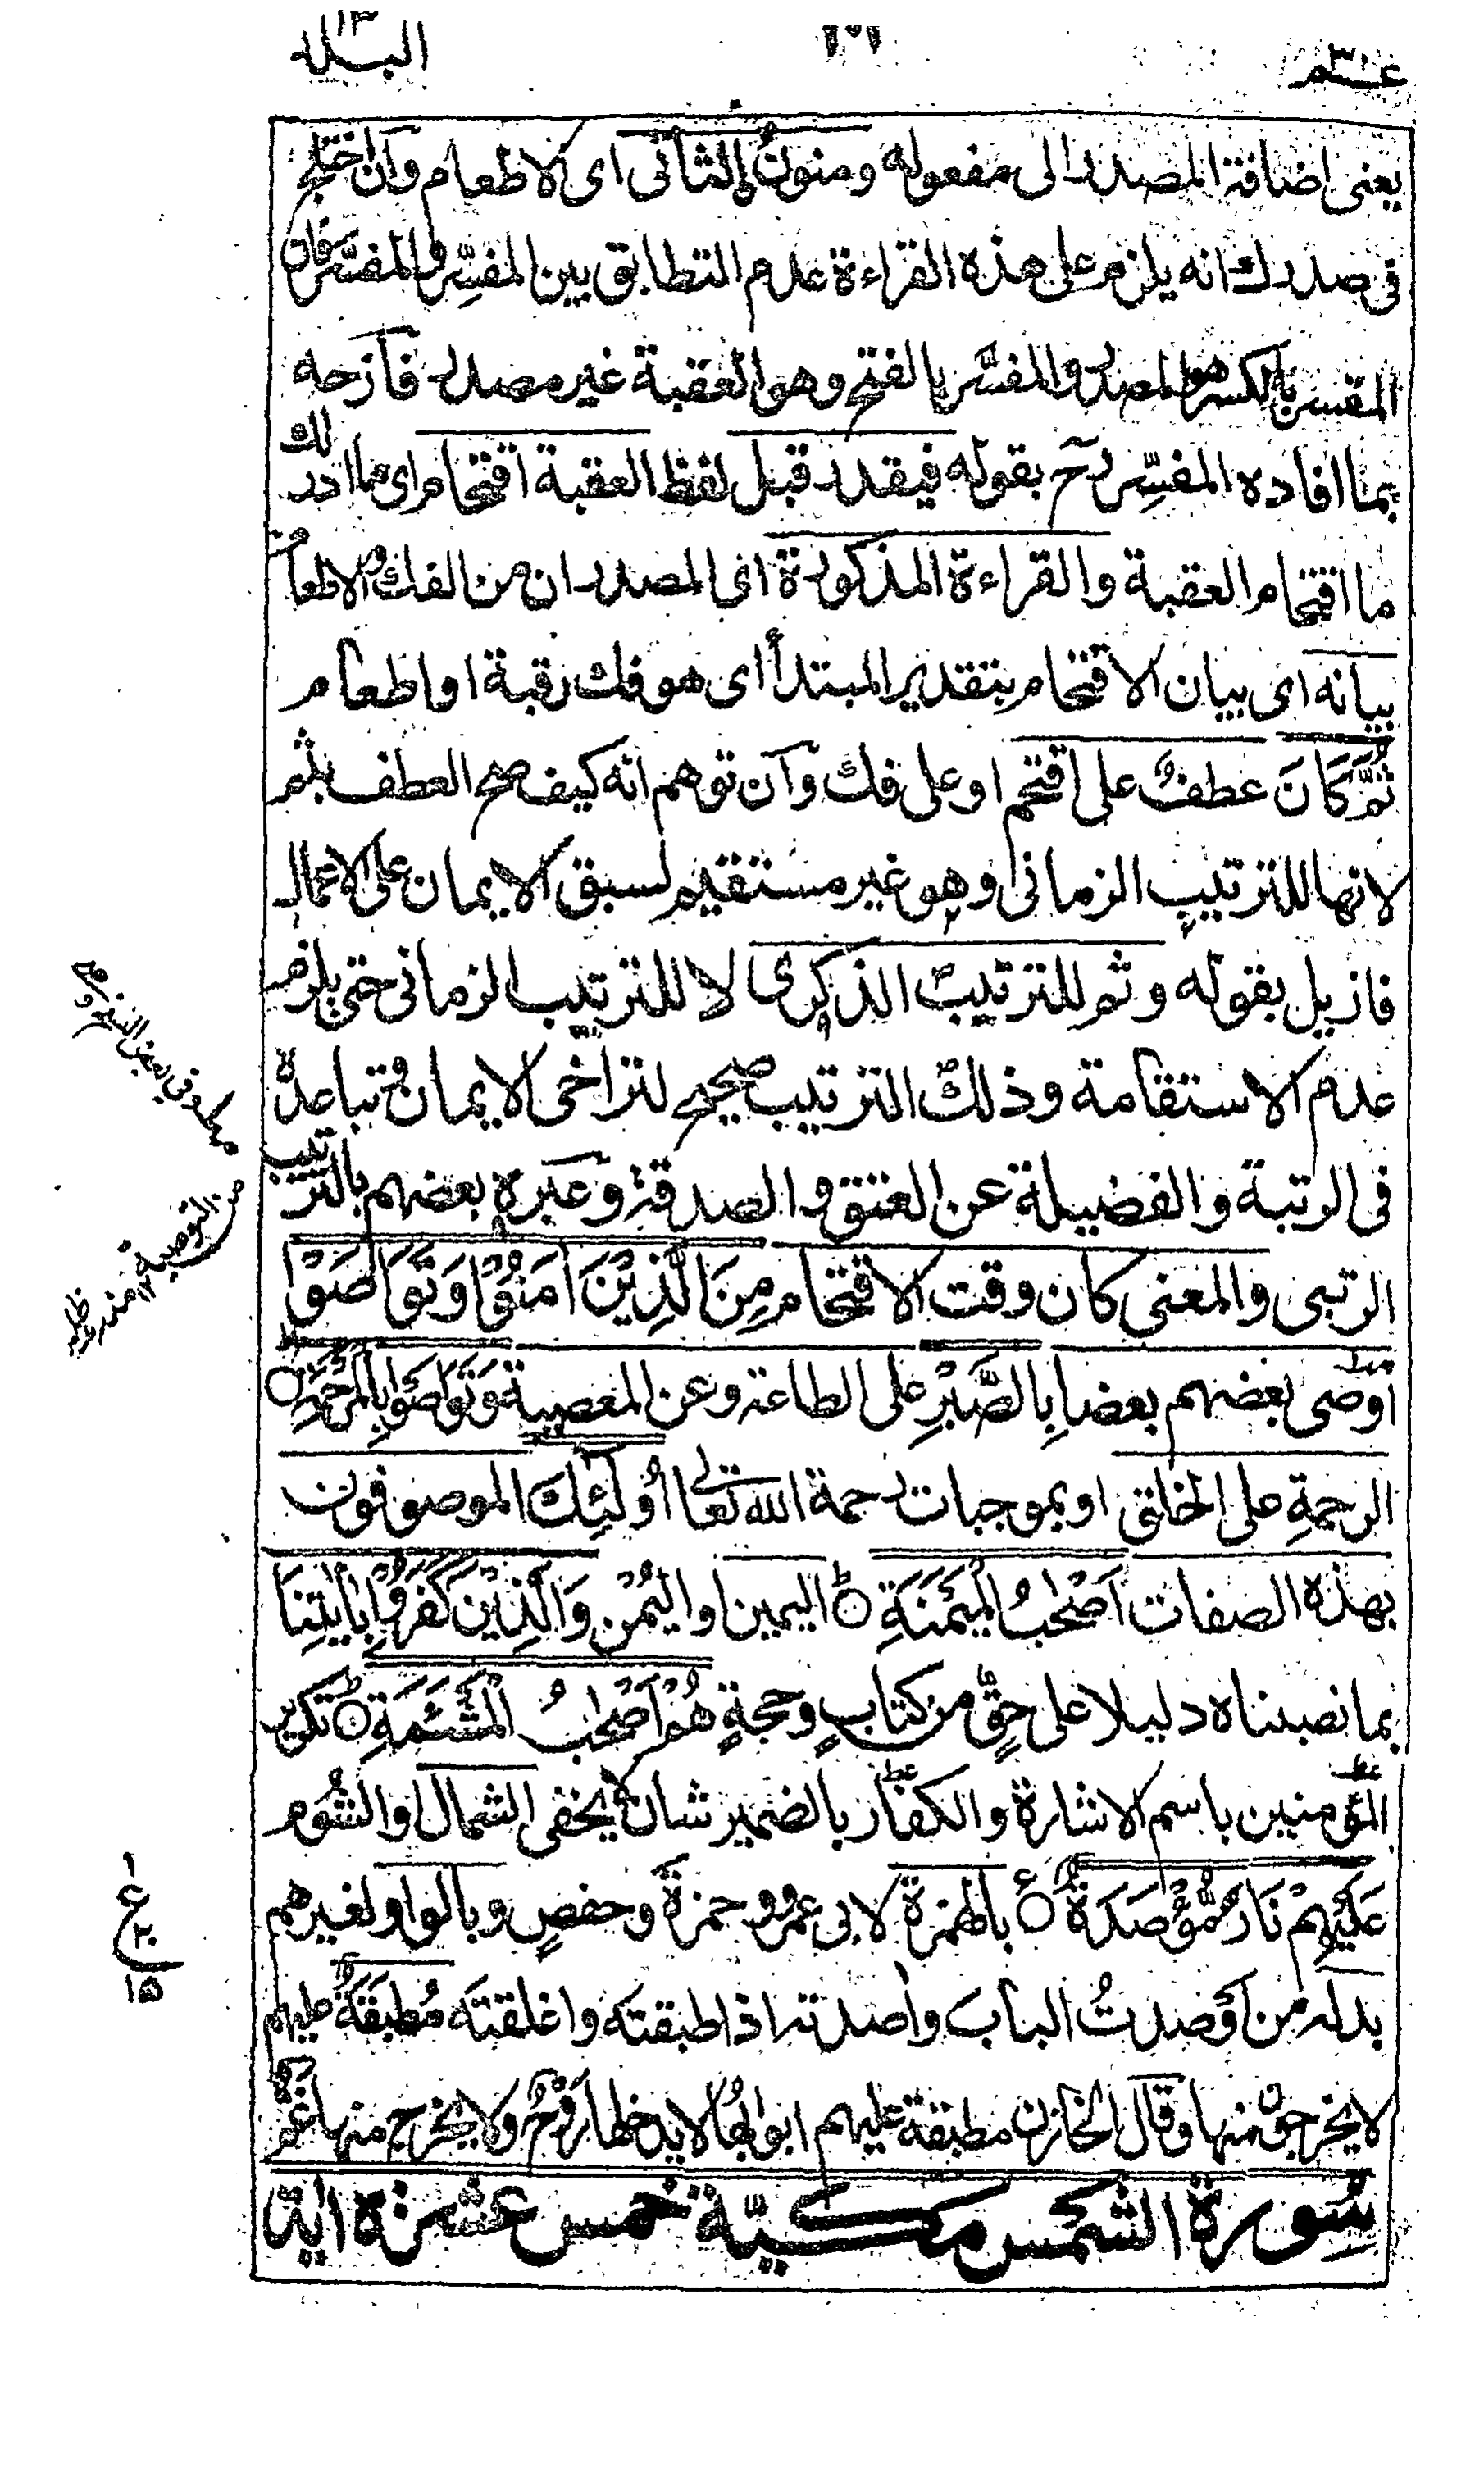 عم ٣٠
١٠١
البلد
يعنى اضافة المصدر الى مفعوله ومنونٌ الثانى اى الاطعام وان اختلج
فى صدرك انه يلزم على هذه القراءة عدم التطابق بين المفسِّر والمفسَّر فان
المفسر بالكسر هو المصدر والمفسَّر بالفتح وهو العقبة غير مصدر فازحه
بما افاده المفسِّر رح بقوله فيقدر قبل لفظ العقبة اقتحام اى ما ادرىك
ما اقتحام العقبة والقراءة المذكورة اى المصدران من الفك والاطعام
بيانه اى بيان الاقتحام بتقدير المبتدأ اى هو فك رقبة او اطعام
ثُمَّ كَانَ عطفٌ على اقتحم او على فك وان توهم انه كيف صح العطف بثم
لانها للترتيب الزمانى وهو غير مستقيم لسبق الايمان على الاعمال
فازيل بقوله وثم للترتيب الذكرى لا للترتيب الزمانى حتى يلزم
عدم الاستقامة وذلك الترتيب صحيح لتراخى الايمان وتباعده
فى الرتبة والفضيلة عن العتق والصدقة وعبره بعضهم بالترتيب
الرتبى والمعنى كان وقت الاقتحام مِنَ الَّذِيْنَ اٰمَنُوْا وَتَوَاصَوْا
اوصى بعضهم بعضا بِالصَّبْرِ على الطاعة وعن المعصية وَتَوَاصَوْا بِالْمَرْحَمَةِ
الرحمةِ على الخلق او بموجبات رحمة الله تعالى اُولٰٓئِكَ الموصوفون
بهذه الصفات اَصْحٰبُ الْمَيْمَنَةِ اليمين او اليُمْن وَالَّذِيْنَ كَفَرُوْا بِاٰيٰتِنَا
بما نصبناه دليلا على حقٍّ من كتابٍ وحجةٍ هُمْ اَصْحٰبُ الْمَشْئَمَةِ تكرير
المؤمنين باسم الاشارة والكفّار بالضمير شان لا يخفى الشمال او الشُوم
عَلَيْهِمْ نَارٌ مُّؤْصَدَةٌ بالهمزة لابى عمرو وحمزة وحفصٍ وبالواو لغيرهم
بدله من اَوصدتُ الباب واٰصدته اذا طبقته واغلقته مُطبَقَةٌ عليهم
لا يخرجون منها وقال الخازن مطبقة عليهم ابوابها لا يدخلها رَوْحٌ ولا يخرج منها غَمٌّ
سُورة الشمس مكيّة خمس عشرة اٰية
ع
١٥